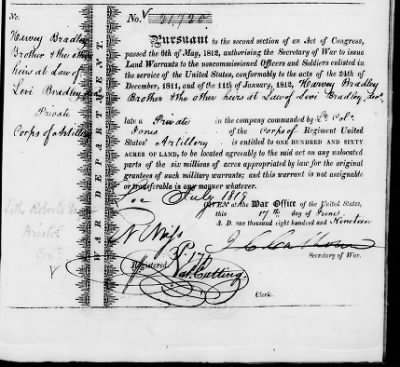 No.
Harvey Bradley
Brother & the other
heirs at Law of
Levi Bradley, dec
Private
Corps of Artillery
WAR DEPARTMENT.
No. 21,720
Pursuant to the second section of an Act of Congress,
passed the 6th of May, 1812, authorising the Secretary of War to issue
Land Warrants to the noncommissioned Officers and Soldiers enlisted
in the service of the United States, conformably to the acts of the 24th of
December, 1811, and the 11th of January, 1812, Harvey Bradley
Brother & the other heirs at Law of Levi Bradley, dec.
late a Private in the company commanded by Lt Col.
Jones of the Corps of Regiment United
States' Artillery is entitled to ONE HUNDRED AND SIXTY
ACRES OF LAND, to be located agreeably to the said act on any unlocated
parts of the six millions of acres appropriated by law for the original
grantees of such military warrants; and this warrant is not assignable
or transferable in any manner whatever.
July 1819
GIVEN at the War Office of the United States,
this 17th day of June
A. D. one thousand eight hundred and Nineteen
J C Calhoun
Secretary of War.
Registered
Nat. Cutting
Clerk.
Bristol